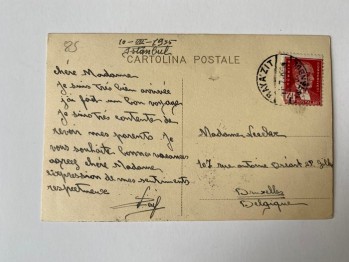 85
10-III-1935
Istanbul
CARTOLINA POSTALE
BAYAZIT
chère Madame
je suis très bien arrivée
j'ai fait un bon voyage
je suis très contente de
revoir mes parents. Je
vous souhaite bonnes vacances
agreez chère Madame
l'expression de mes sentiments
respectueux
Madame
107 rue
Bruxelles
Belgique